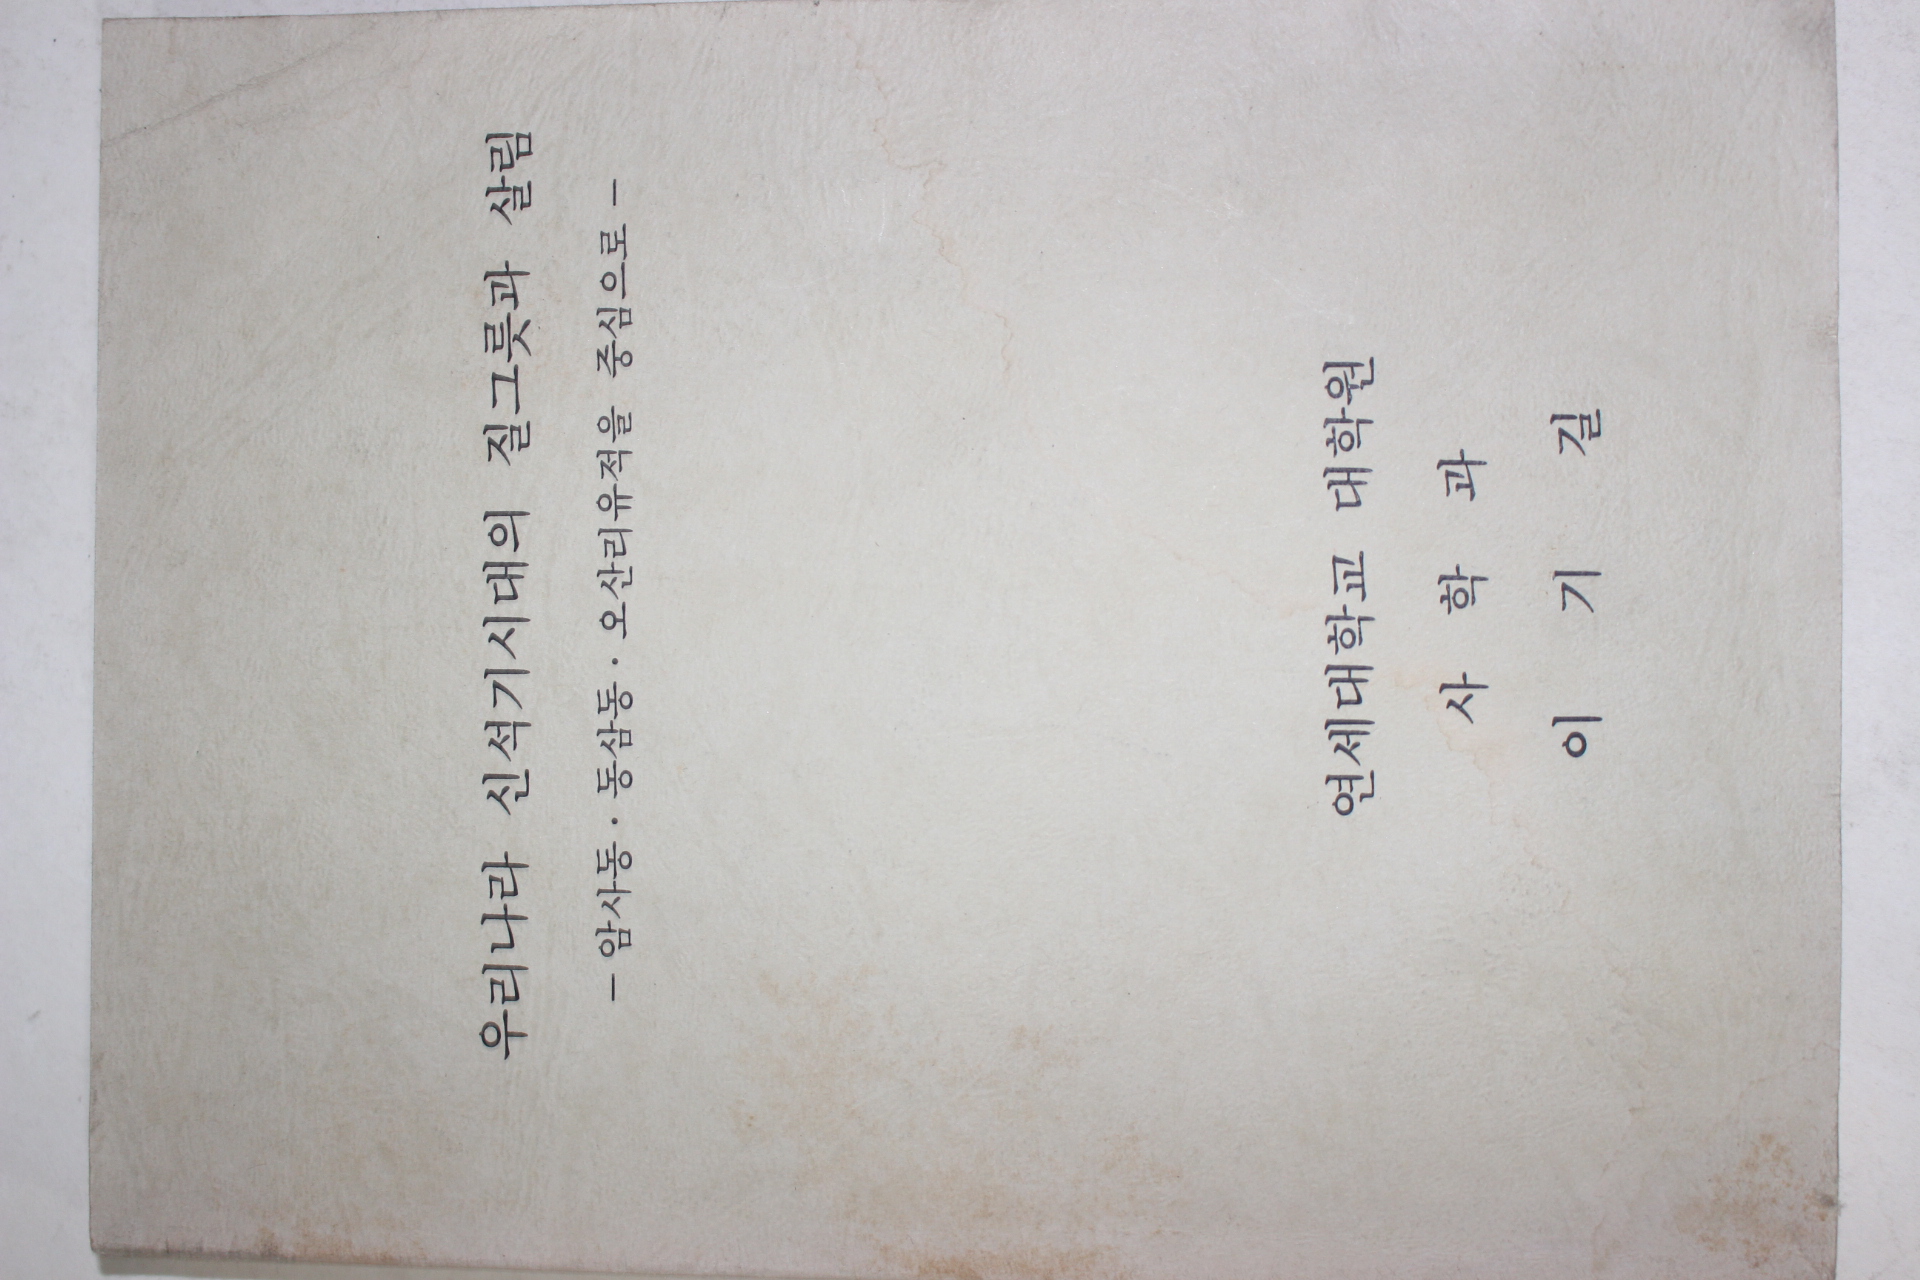 우리나라 신석기시대의 질그릇과 살림
– 암사동 · 동삼동 · 오산리유적을 중심으로 –
연세대학교 대학원
사 학 과
이 기 길